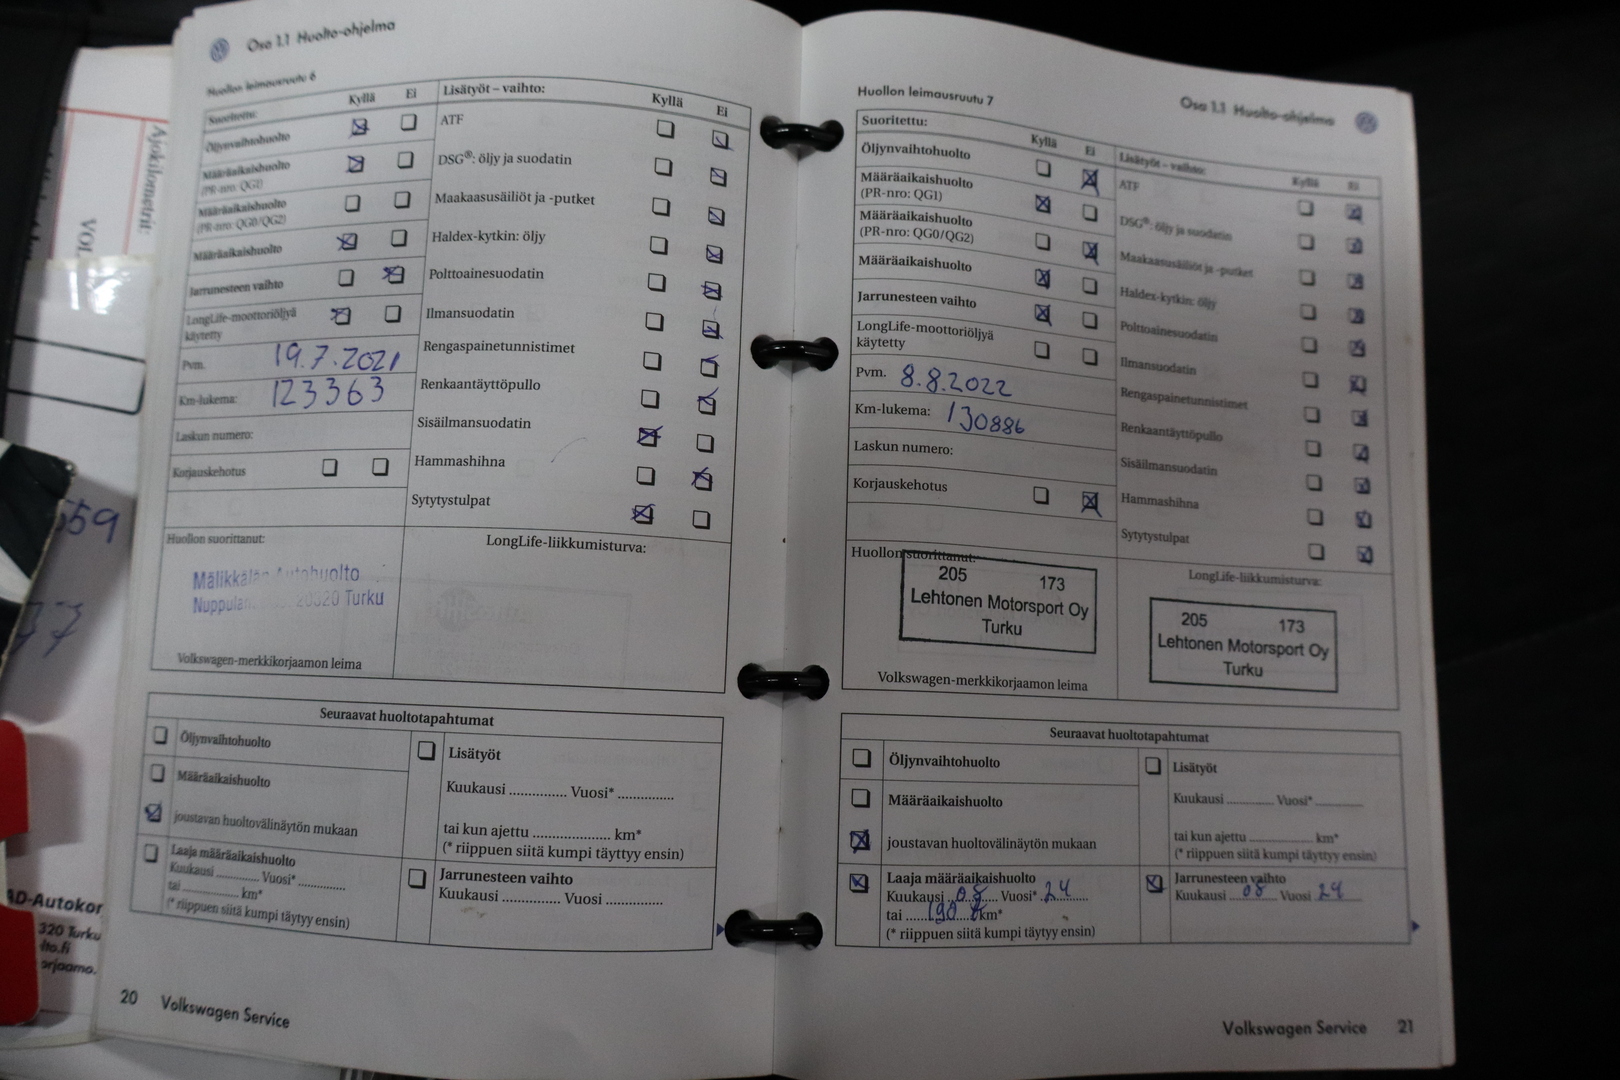 Osa 1.1 Huolto-ohjelma
Huollon leimausruutu 6
Suoritettu:
Kyllä
Ei
Öljynvaihtohuolto
Määräaikaishuolto
(PR-nro: QG1)
Määräaikaishuolto
(PR-nro: QG0/QG2)
Määräaikaishuolto
Jarrunesteen vaihto
LongLife-moottoriöljyä
käytetty
Pvm. 19.7.2021
Km-lukema: 123363
Laskun numero:
Korjauskehotus
Lisätyöt – vaihto:
Kyllä
Ei
ATF
DSG®: öljy ja suodatin
Maakaasusäiliöt ja -putket
Haldex-kytkin: öljy
Polttoainesuodatin
Ilmansuodatin
Rengaspainetunnistimet
Renkaantäyttöpullo
Sisäilmansuodatin
Hammashihna
Sytytystulpat
Huollon suorittanut:
Mälikkälän Autohuolto
20320 Turku
Volkswagen-merkkikorjaamon leima
LongLife-liikkumisturva:
Seuraavat huoltotapahtumat
Öljynvaihtohuolto
Määräaikaishuolto
joustavan huoltovälinäytön mukaan
Laaja määräaikaishuolto
Kuukausi .............. Vuosi* ..............
tai .............. km*
(* riippuen siitä kumpi täytyy ensin)
Lisätyöt
Kuukausi .............. Vuosi* ..............
tai kun ajettu .................... km*
(* riippuen siitä kumpi täyttyy ensin)
Jarrunesteen vaihto
Kuukausi .............. Vuosi ..............
20 Volkswagen Service
Huollon leimausruutu 7
Osa 1.1 Huolto-ohjelma
Suoritettu:
Kyllä
Ei
Öljynvaihtohuolto
Määräaikaishuolto
(PR-nro: QG1)
Määräaikaishuolto
(PR-nro: QG0/QG2)
Määräaikaishuolto
Jarrunesteen vaihto
LongLife-moottoriöljyä
käytetty
Pvm. 8.8.2022
Km-lukema: 130886
Laskun numero:
Korjauskehotus
Lisätyöt – vaihto:
Kyllä
Ei
ATF
DSG®: öljy ja suodatin
Maakaasusäiliöt ja -putket
Haldex-kytkin: öljy
Polttoainesuodatin
Ilmansuodatin
Rengaspainetunnistimet
Renkaantäyttöpullo
Sisäilmansuodatin
Hammashihna
Sytytystulpat
Huollon suorittanut:
205 173
Lehtonen Motorsport Oy
Turku
Volkswagen-merkkikorjaamon leima
LongLife-liikkumisturva:
205 173
Lehtonen Motorsport Oy
Turku
Seuraavat huoltotapahtumat
Öljynvaihtohuolto
Määräaikaishuolto
joustavan huoltovälinäytön mukaan
Laaja määräaikaishuolto
Kuukausi 08 Vuosi* 24
tai 190 km*
(* riippuen siitä kumpi täyttyy ensin)
Lisätyöt
Kuukausi .............. Vuosi* ..............
tai kun ajettu .............. km*
(* riippuen siitä kumpi täyttyy ensin)
Jarrunesteen vaihto
Kuukausi 08 Vuosi 24
Volkswagen Service 21
Ajokilometrit:
VOL
559
77
AD-Autokor
320 Turku
lto.fi
orjaamo.